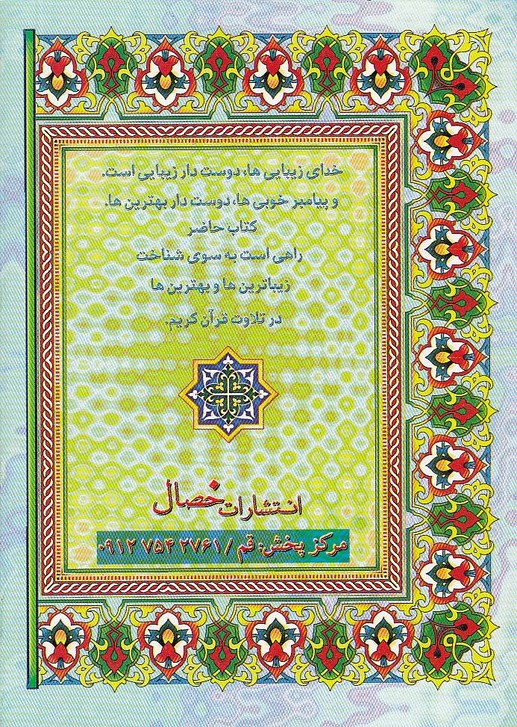 خدای زیبایی ها، دوست دار زیبایی است.
و پیامبر خوبی ها، دوست دار بهترین ها.
کتاب حاضر
راهی است به سوی شناخت
زیباترین ها و بهترین ها
در تلاوت قرآن کریم.
انتشارات خصال
مرکز پخش: قم / ۰۹۱۲ ۷۵۴ ۲۷۶۱